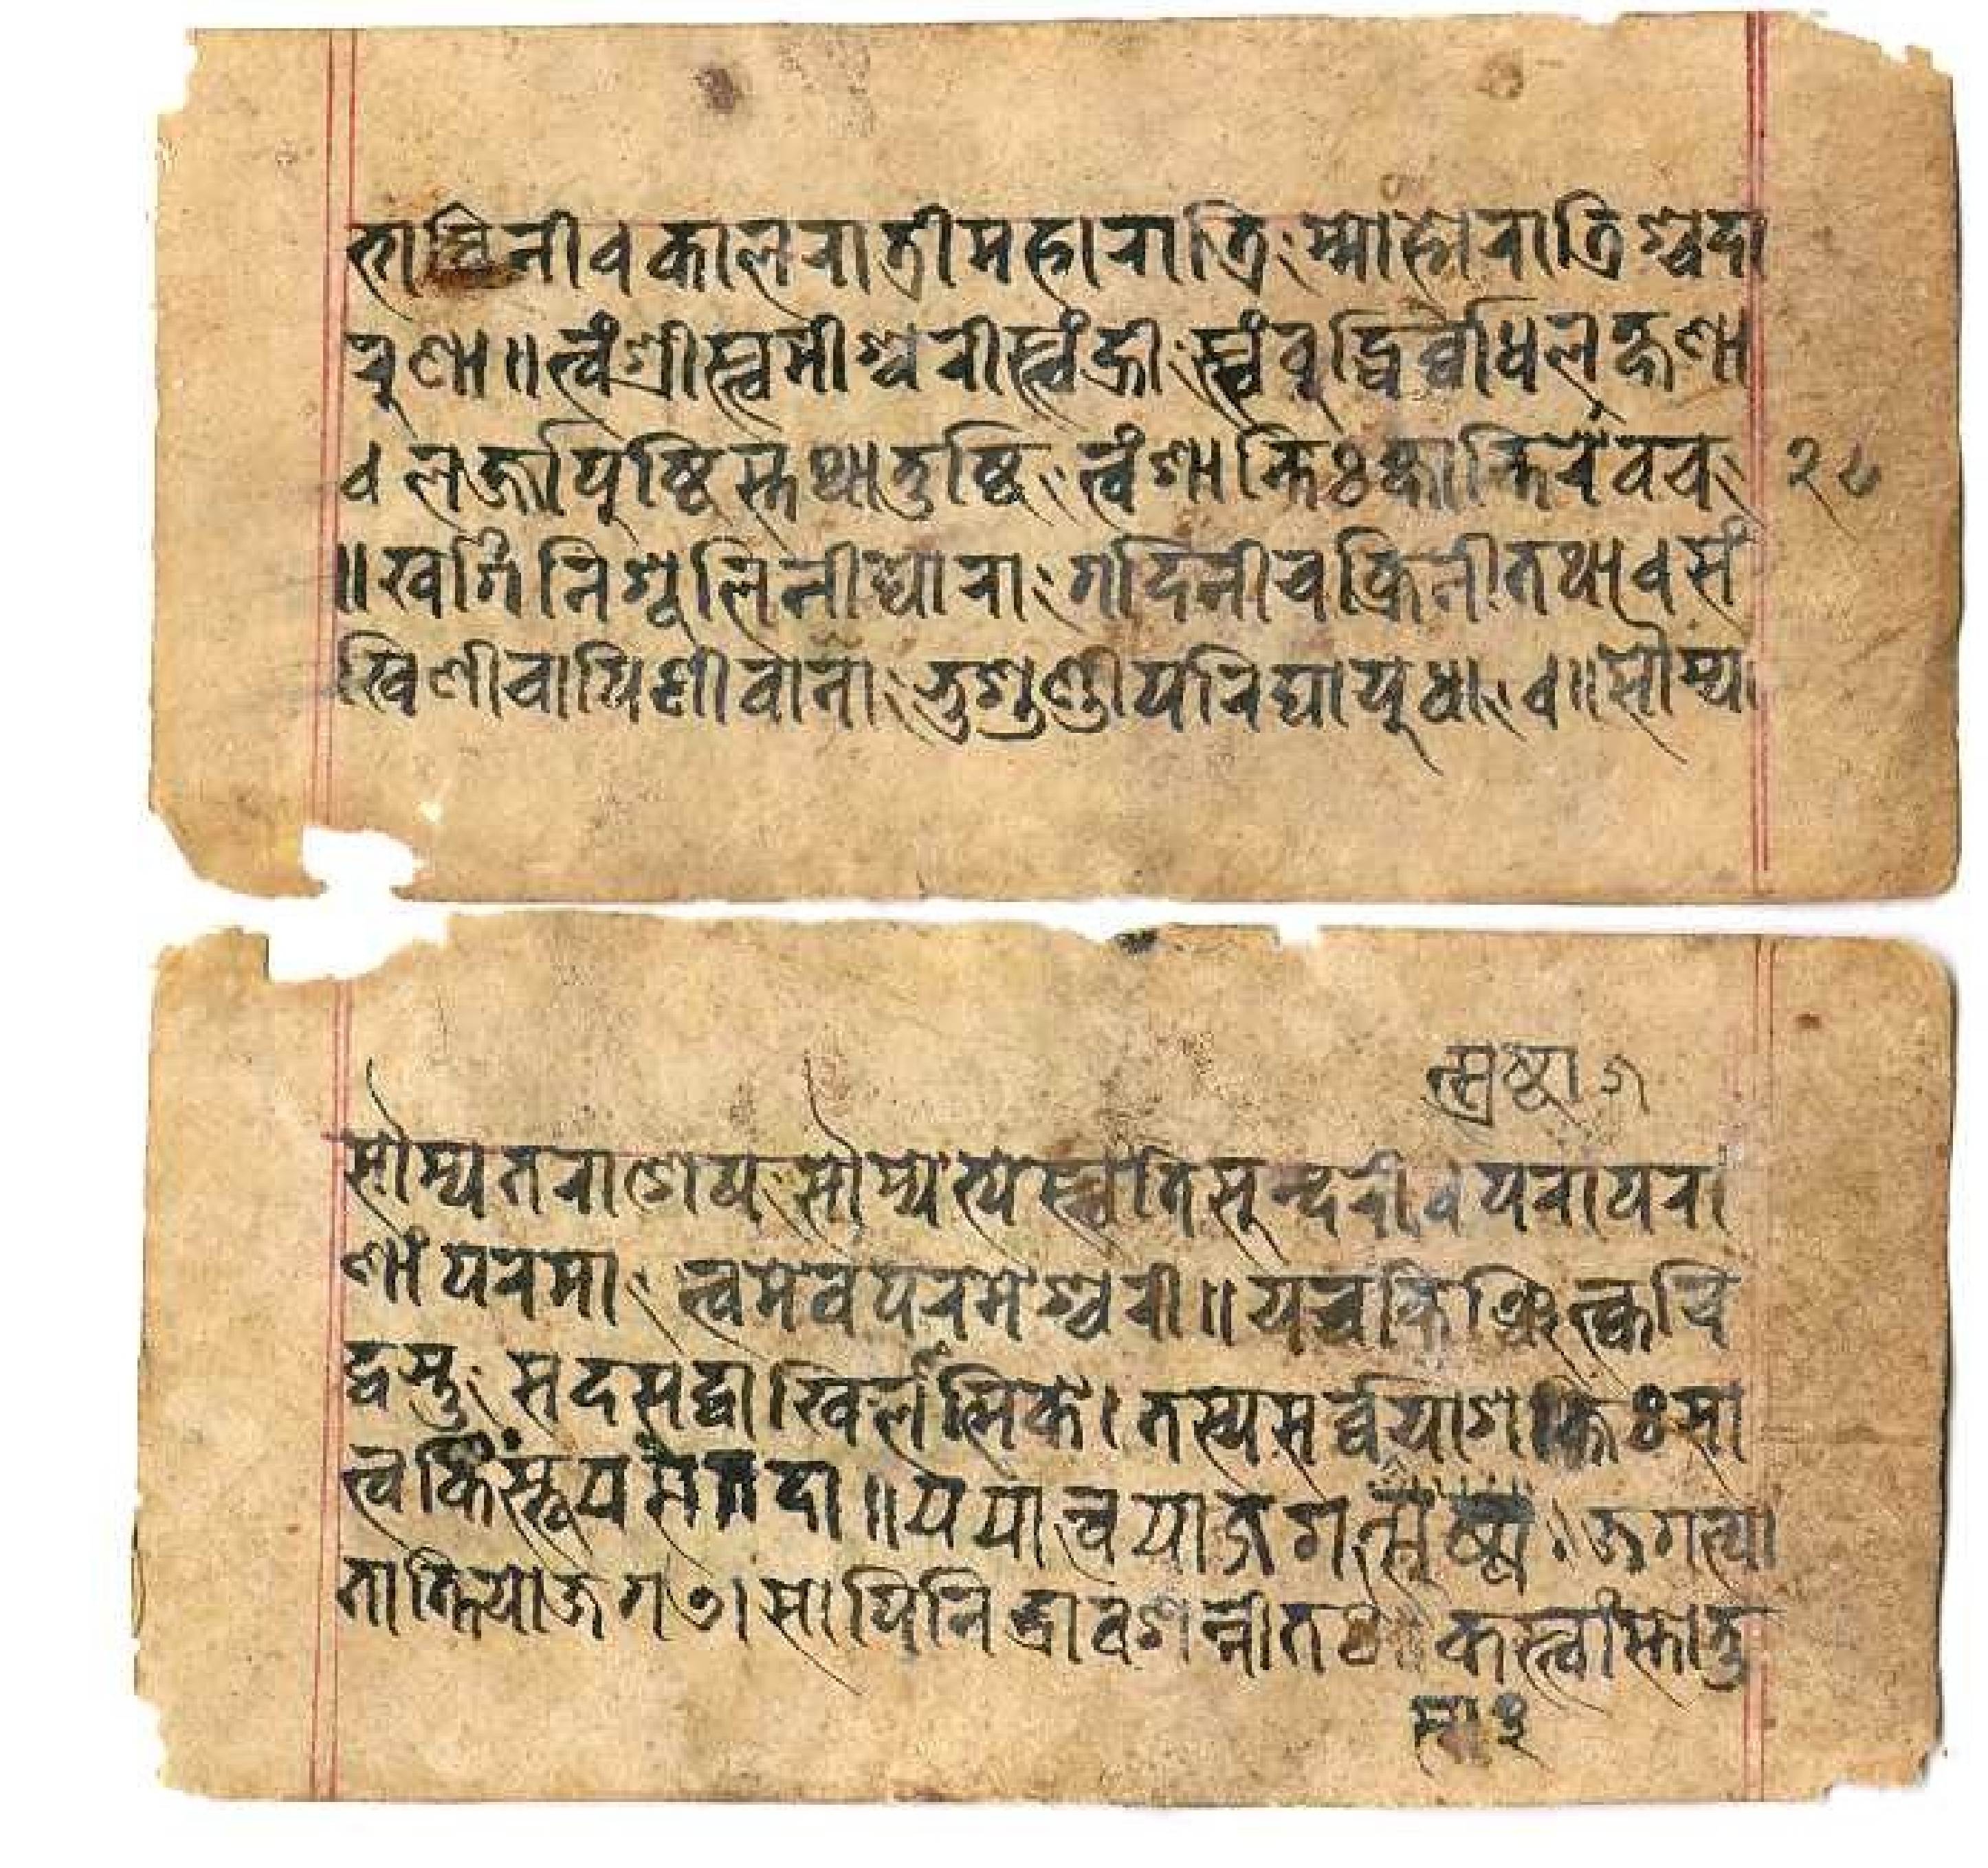 भाविनीव कालरात्रीमहारात्रिः म्माहारात्रिश्चदा
रुणा॥ त्वंश्रीस्त्वमीश्वरीस्त्वंह्रीः स्त्वंबुद्धिर्ब्बोधिलक्षणा
व लज्जापुष्टिस्तथातुष्टिः त्वंशान्तिःक्षान्तिरेवच
॥ खर्गिनिशूलिनीघोराः गदिनीचक्रिनीतथा वसं
खिणीचापिणीवानाः भुशुण्डीपरिघायुधाः व॥ सौम्या
२८
सृष्टा ज
सौम्यतराशेष्यः सौम्येत्यस्त्वतिसुन्दरी वपरापरा
णांपरमाः त्वमेवपरमेश्वरी॥ यच्चकिञ्चित्क्वचि
द्वस्तुः सदसद्वाखिलेत्मिके। तस्यसर्वेयाशक्तिःसा
त्वंकिंस्तुयसेतदा॥ ययात्वयाजगत्सृष्टा ॥ जगत्पा
तात्तियोजगत्। सोपिनिद्रावशन्नीतः कस्त्वांस्तोतु